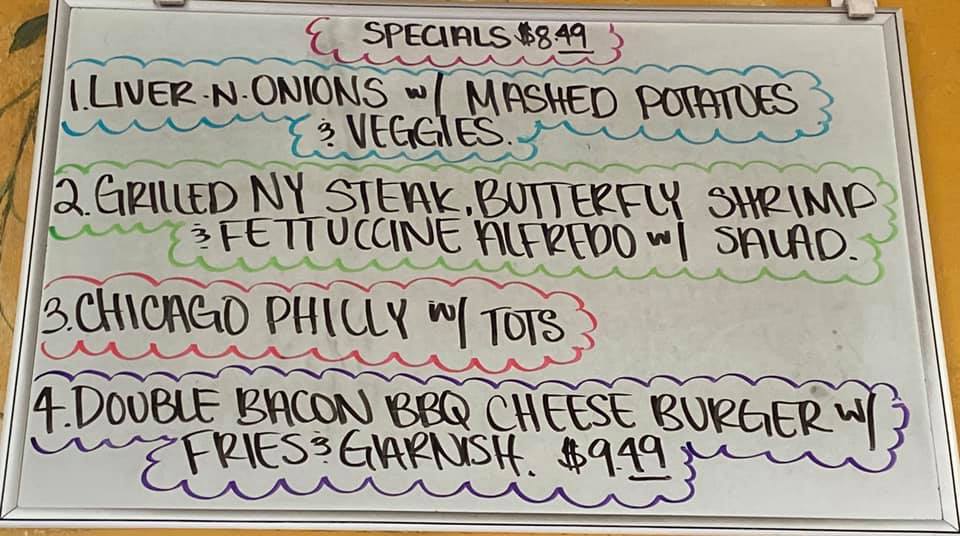 SPECIALS $8.49
1. LIVER-N-ONIONS w/ MASHED POTATOES
& VEGGIES.
2. GRILLED NY STEAK, BUTTERFLY SHRIMP
& FETTUCCINE ALFREDO w/ SALAD.
3. CHICAGO PHILLY w/ TOTS
4. DOUBLE BACON BBQ CHEESE BURGER w/
FRIES & GARNISH. $9.49